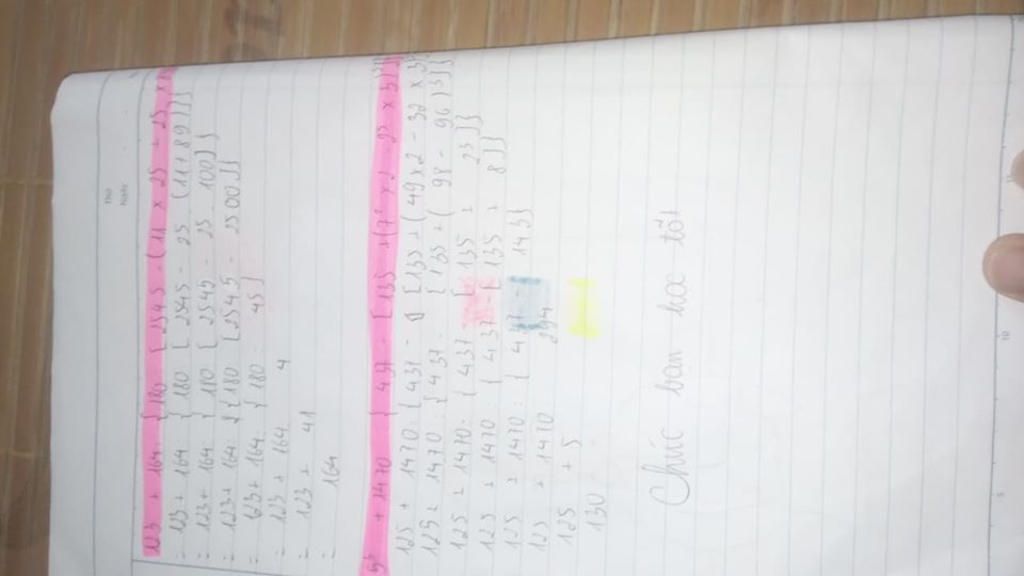 Thứ
Ngày
123 + 164 : {180 : [2545 - (11 × 25 + 25 ×
= 123 + 164 : {180 : [2545 - 25 . (11 + 89)]}
= 123 + 164 : {180 : [2545 - 25 . 100]}
= 123 + 164 : {180 : [2545 - 2500]}
= 123 + 164 : {180 : 45}
= 123 + 164 : 4
= 123 + 41
= 164
5³ + 1470 : {437 - [135 + (7² × 2 - 2⁵ × 3)
125 + 1470 : {437 - [135 + (49 × 2 - 32 × 3)
125 + 1470 : {437 - [135 + (98 - 96)³]}
125 + 1470 : {437 - [135 + 2³]}
125 + 1470 : {437 - [135 + 8]}
125 + 1470 : {437 - 143}
125 + 1470 : 294
125 + 5
130
Chúc bạn học tốt